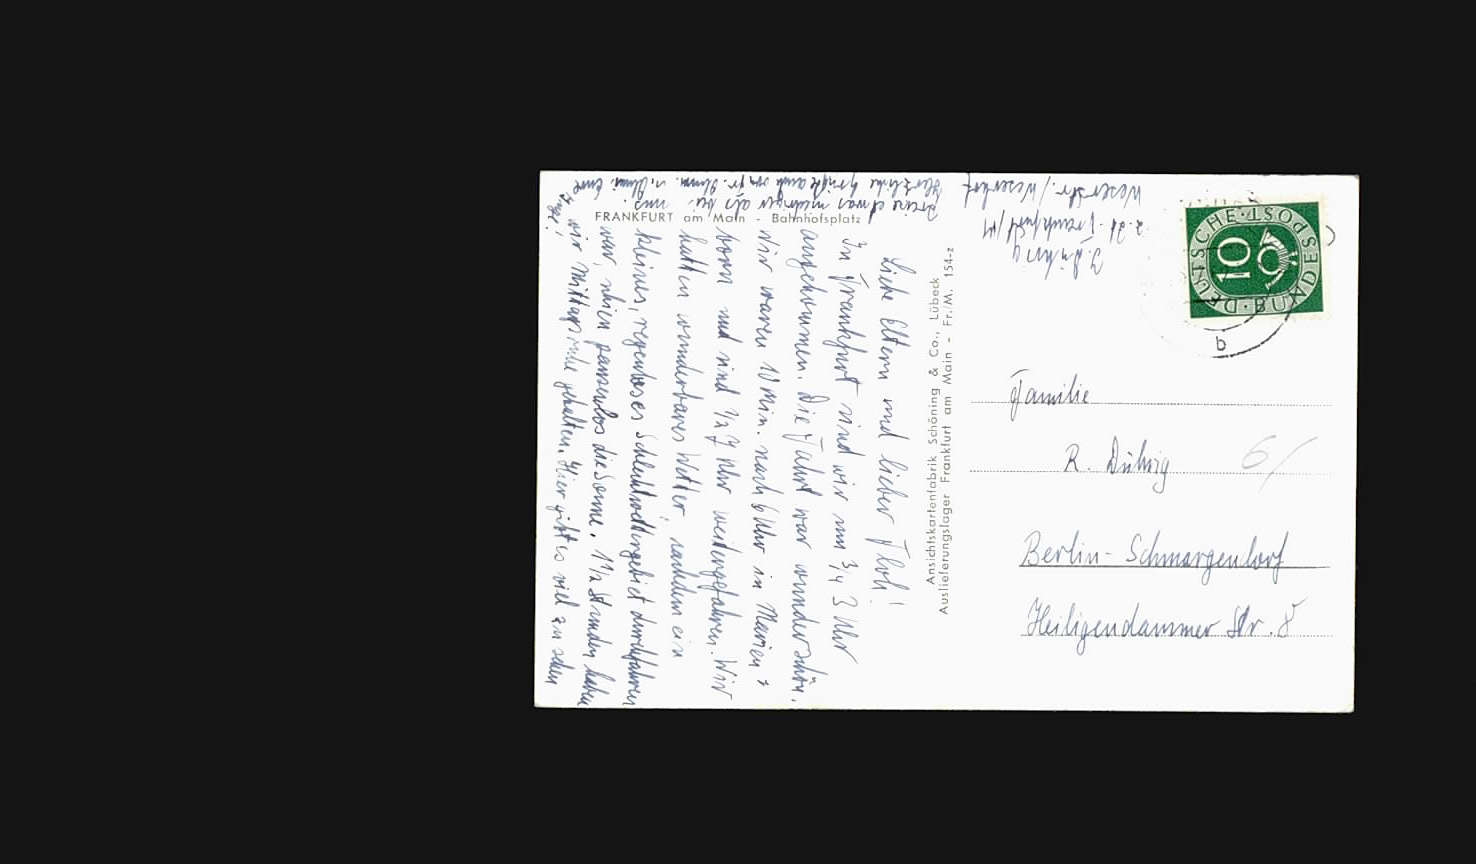 FRANKFURT am Main - Bahnhofsplatz
Liebe Eltern und lieber Floh!
In Frankfurt sind wir um 3/4 3 Uhr
angekommen. Die Fahrt war wunderschön.
Wir waren 10 Min. nach 6 Uhr in Marien =
born und sind 1/2 7 Uhr weitergefahren. Wir
hatten wunderbares Wetter, nachdem ein
kleines, regenloses Schlechtwettergebiet durchfahren
war, schien pausenlos die Sonne. 1 1/2 Stunden haben
wir Mittagsruhe gehalten. Hier gibt es viel zu sehen
Preise etwas niedriger als bei uns.
Herzliche Grüße auch von Eure
Inge!
Ansichtskartenfabrik Schöning & Co., Lübeck
Auslieferungslager Frankfurt am Main - Fr./M. 154-z
I. Dühring
Frankfurt/M
Weserstr./Weserhof
DEUTSCHE BUNDESPOST
10
b
Familie
R. Dühring
6/
Berlin-Schmargendorf
Heiligendammer Str. 8